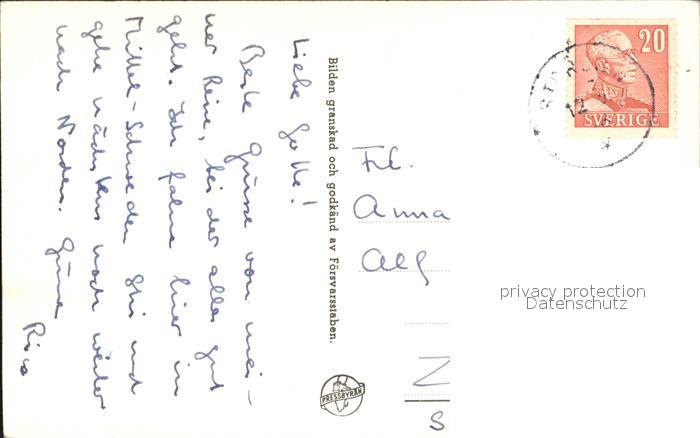 Liebe Gotte!
Beste Grüsse von mei-
ner Reise, bei der alles gut
geht. Ich fahre hier in
Mittel-Schweden Ski und
gehe nächstens noch weiter
nach Norden. Grüsse
Bilden granskad och godkänd av Försvarsstaben.
PRESSBYRÅN
20
SVERIGE
12
Frl.
Anna
Z
S
privacy protection
Datenschutz